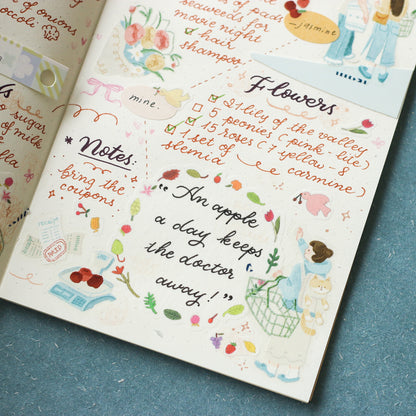 of onions
occoli
sugar
of milk
lla
of pads
seaweeds for
movie night
hair
shampoo
jasmine
mine.
Flowers
2 lily of the valley
5 peonies (pink-lite)
15 roses (7 yellow - 8
carmine)
1 set of
slemia
* Notes
bring the
coupons
" An apple
a day keeps
the doctor
away! "